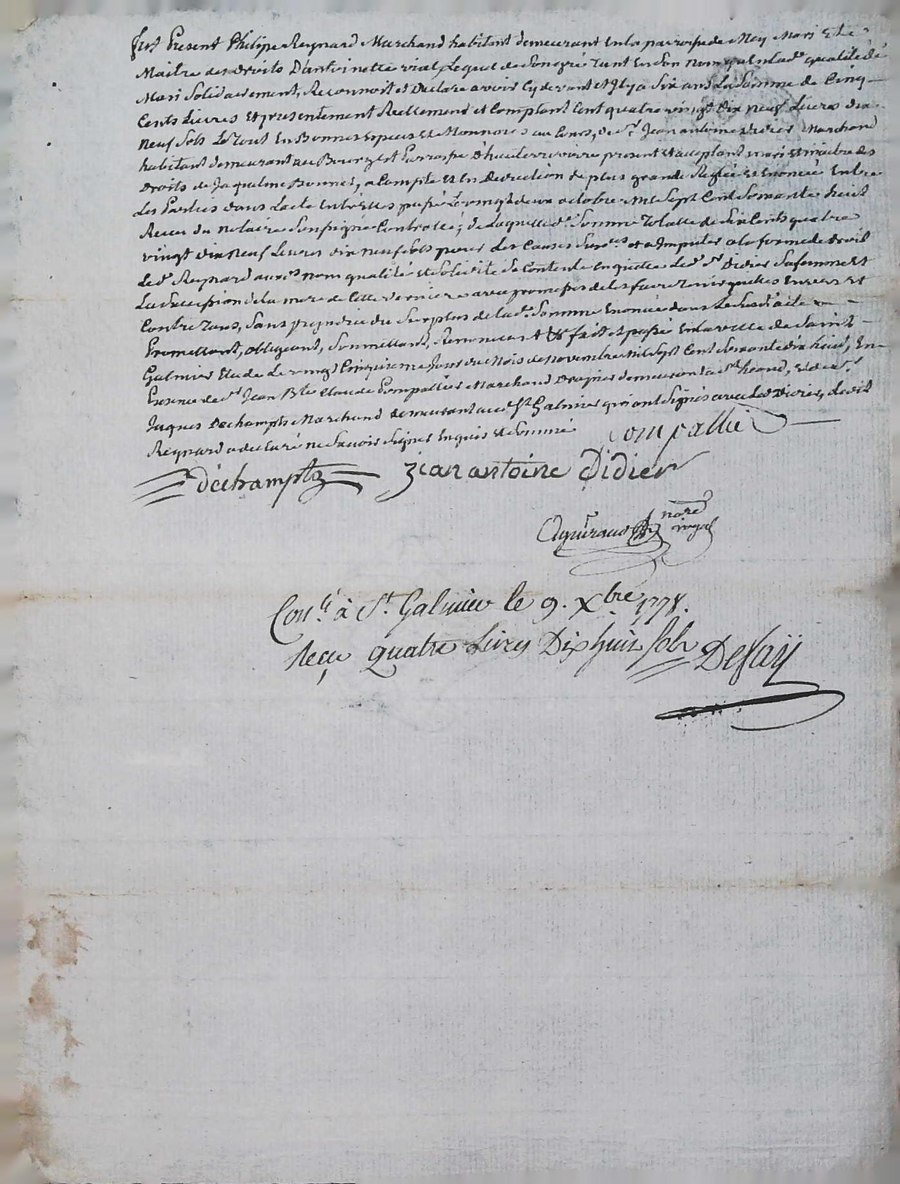 fut Present Philipe Reynard Marchand habitant demeurant En la parroisse de Mey Mari Et Le
Maitre des Droits D'antoinette vial Lequel de Son gré tant En Son nom qu'en lad. qualité de
Mari Solidairement, Reconnoit et Declare avoir Cy devant et Il y a Six ans La Somme de Cinq
Cents Livres et presentement Reellement et Comptant Cent quatre vingt Dix neuf Livres dix
neuf Sols Le Tout En Bonnes Especes et Monnoies au Cours, de Sr. Jean antoine Didier Marchand
habitant demeurant au Bourg et Parroisse d'hauterivoire present et acceptant mari et maitre des
Droits de Jaqueline Bonnet, a Compte et En Deduction de plus grande Reglée et Enoncée Entre
Les Parties dans L'acte Entr'Elles passé Le vingt deux octobre Mil Sept Cent Soixante huit
Recu du Notaire Soussigné Controllé; de Laquelle de. Somme Totalle de Six Cents quatre
vingt Dix Neuf Livres Dix Neuf Sols pour Les Causes Susd.es et a Imputer a la forme de droit
Led. Reynard aux.d nom qualité et Solidité Se Contente En quitte Led. Sr. Didier Sa femme Et
La Succession de la mere de Cette Derniere avec promesses de Les faire Tenir quittes Envers Et
Contre Tous, Sans prejudice du Surplus de la d. Somme Enoncée dans Le Susd. acte
Promettant, obligeant, Soumettant, Renoncant &c. fait et passé En la ville de Saint
Galmier Etude Le vingt Cinquieme Jour du Mois de Novembre Mil Sept Cent Soixante dix huit, En
Presence de Sr. Jean Bte. Claude Compallier Marchand Drapier demeurant a St. heand, et de Sr.
Jaques Dechamps Marchand demeurant aud. St. Galmier qui ont Signés avec Led. Didier, Led. dit
Reynard a declaré ne Savoir Signer Enquis et Sommé
Compallier
déchamptz jean antoine Didier
Guiraud nore royal
Conlé à St. Galmier le 9. Xbre 1778.
Reçu quatre Livres Dix huit Sols Defaÿ